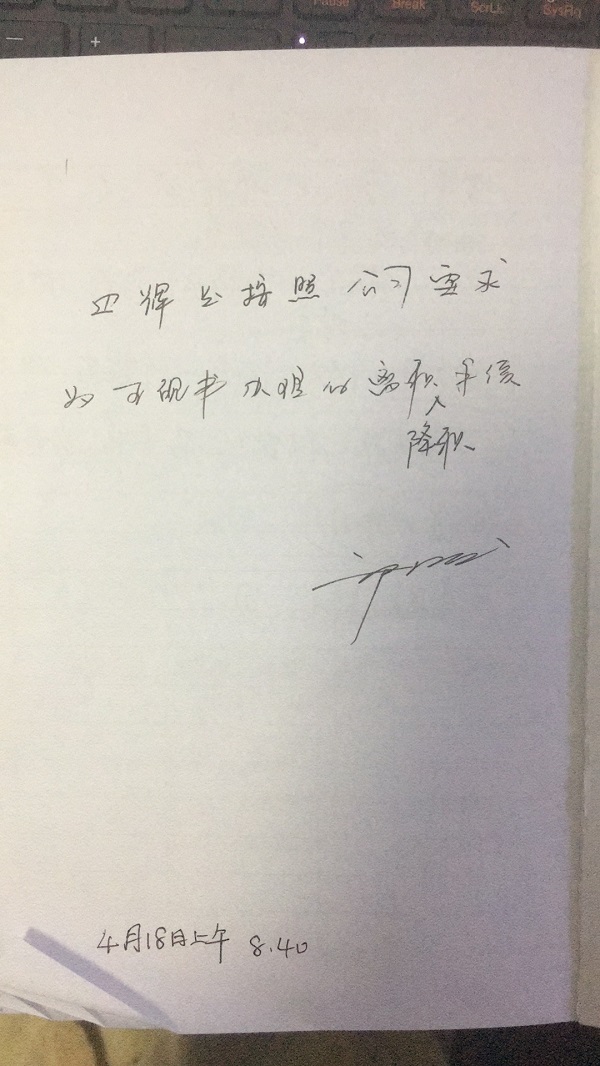 Pause
Break
ScrLk
SysRq
—
+
辉 按照 公司 要求
为 办理 离职 手续
降职
4月18日上午 8.40